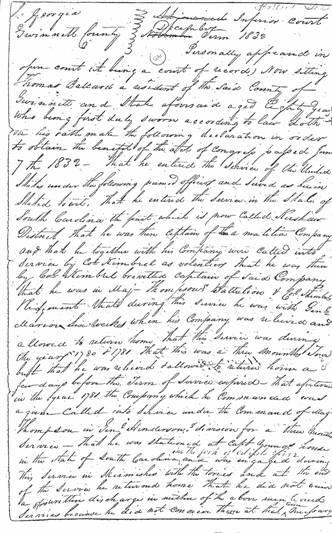 Georgia
Gwinnett County
Inferior Court
Term 1832
Personally appeared in
open court it being a court of record, Now sitting
Thomas a resident of the Said County of
Gwinnett and State aforesaid aged Eighty years
who being first duly sworn according to law doth
on his oath make the following declaration in order
to obtain the benefit of the Act of Congress passed June
7th 1832 — That he entered the service of the United
States under the following named officers and served as herein
Stated to wit. That he entered the Service in the State of
South Carolina the part which is now Called Kershaw
District that he was then captain of a malitia Company
and that he together with his Company were Called into
Service by Col Kimbrel as volunteers that he was then
by Col Kimbrel Captain of Said Company
that he was in Maj Thompsons Battalion & Col
Regiment that during this Service he was with Genl
Marion weeks when his Company was relieved and
allowed to return home That this Service was during
the years 1780 & 1781 That this was a three months Tour
but that he was relieved & allowed to return home a
few days before the Term of Service expired that afterwards
in the year 1781 the Company which he Commanded was
again Called into Service under the Command of Maj
Thompson in Genl Hendersons division for a three months
Service — that he was stationed at Capt house
in the State of South Carolina and was engaged during
this Service in Skirmishes with the tories that at the end
of the Service he returned home that he did not receive
a written discharge in neither of the above mentioned
Services because he did not conceive them at that time